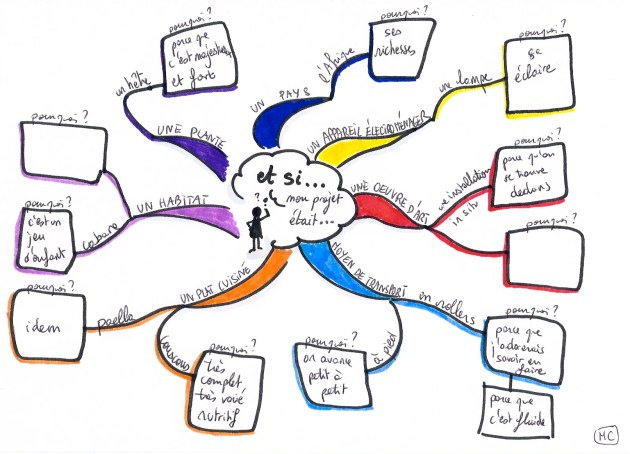 et si...
mon projet
était...
?
UN PAYS
l'Afrique
pourquoi?
ses
richesses
UN APPAREIL ÉLECTROMÉNAGER
une lampe
pourquoi?
ça
éclaire
UNE OEUVRE D'ART
une installation
in situ
pourquoi?
parce qu'on
se trouve
dedans
pourquoi?
MOYEN DE TRANSPORT
en rollers
pourquoi?
parce que
j'adorerais
savoir en
faire
parce que
c'est fluide
à pied
pourquoi?
on avance
petit à
petit
UN PLAT CUISINÉ
couscous
pourquoi?
très
complet
très varié
nutritif
paella
pourquoi?
idem
UN HABITAT
cabane
pourquoi?
c'est un
jeu
d'enfant
pourquoi?
UNE PLANTE
un hêtre
pourquoi?
parce que
c'est majestueux
et fort
MC